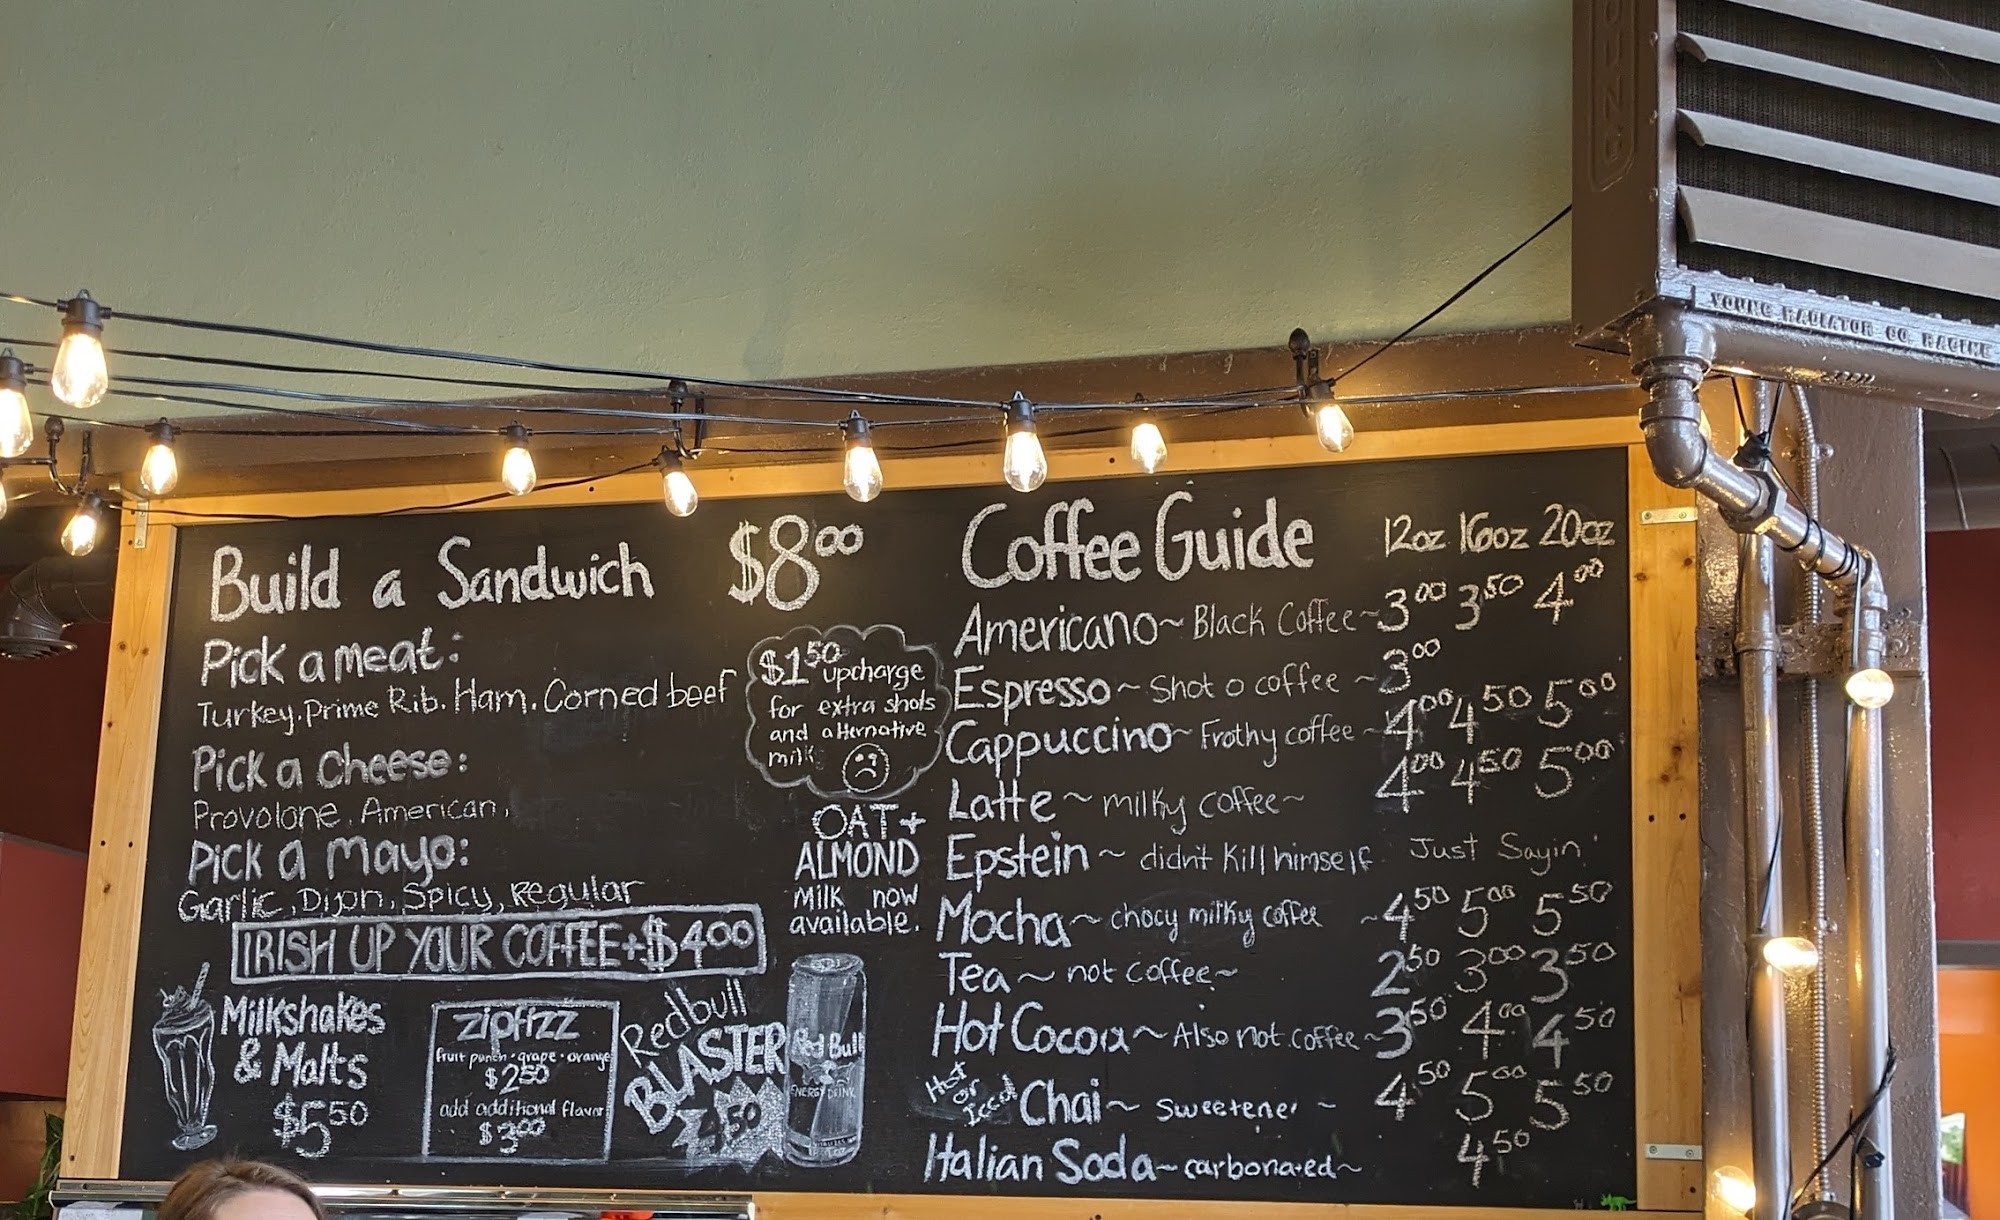 Build a Sandwich $8.00
Pick a meat:
Turkey. Prime Rib. Ham. Corned beef
Pick a cheese:
Provolone, American,
Pick a mayo:
Garlic, Dijon, Spicy, Regular
IRISH UP YOUR COFFEE+$4.00
Milkshakes
& Malts
$5.50
zipfizz
fruit punch · grape · orange
$2.50
add additional flavor
$3.00
Redbull
BLASTER
4.50
Red Bull
ENERGY DRINK
$1.50 upcharge
for extra shots
and alternative
milk
OAT +
ALMOND
milk now
available.
Coffee Guide 12oz 16oz 20oz
Americano~ Black Coffee~ 3.00 3.50 4.00
Espresso~ Shot o coffee ~ 3.00
Cappuccino~ Frothy coffee ~ 4.00 4.50 5.00
Latte ~ milky coffee~ 4.00 4.50 5.00
Epstein ~ didn't kill himself Just Sayin'
Mocha~ chocy milky coffee ~ 4.50 5.00 5.50
Tea~ not coffee~ 2.50 3.00 3.50
Hot Cocoa~ Also not coffee~ 3.50 4.00 4.50
Hot or Iced Chai~ sweetener ~ 4.50 5.00 5.50
Italian Soda~ carbonated~ 4.50
YOUNG RADIATOR CO. RACINE